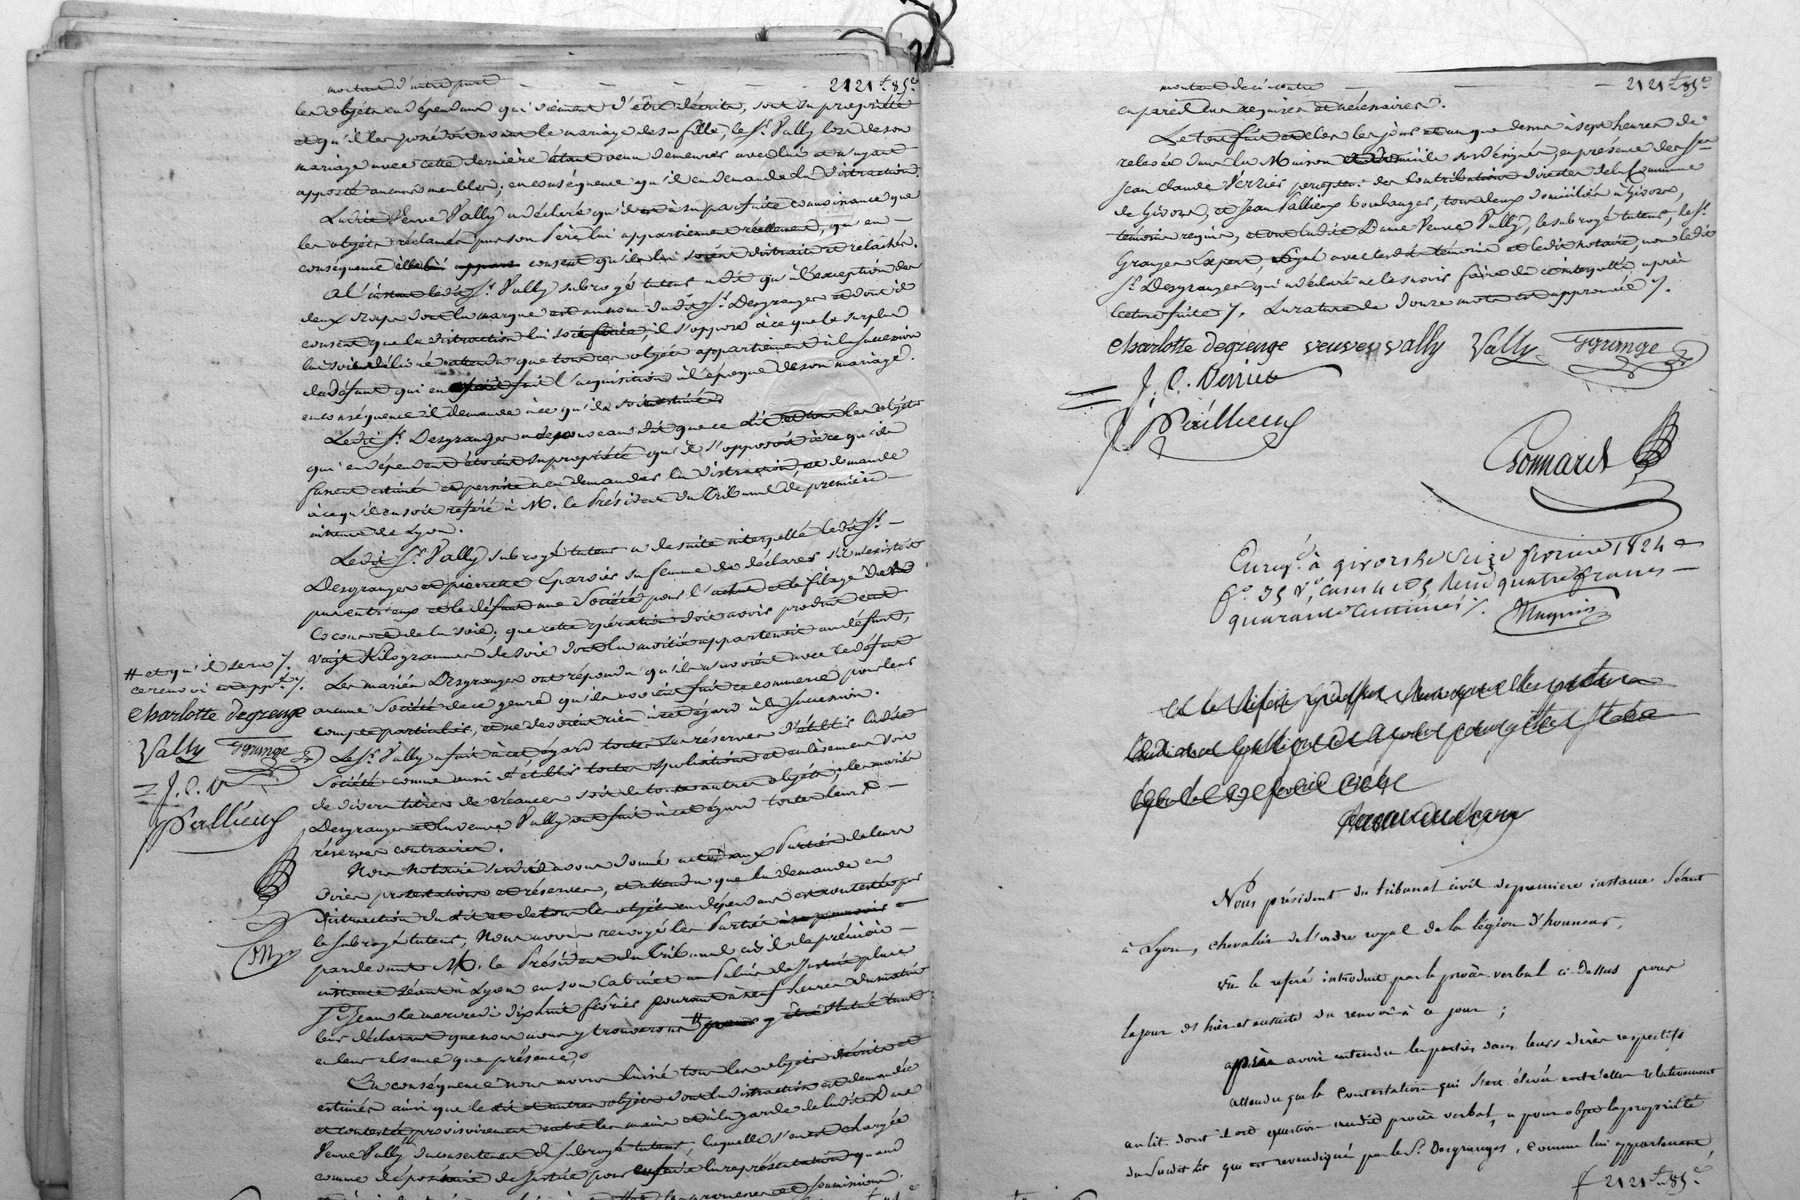 montant d'autre part — — — — 2121 ᶠ 85 ᶜ
les objets en dépendans qui viennent d'être décrits, sont sa propriété
et qu'il les possédoit avant le mariage de sa fille, le Sʳ Vally lors de son
mariage avec cette dernière étant venu demeurer avec lui et n'ayant
apporté aucuns meubles; en conséquence qu'il en demande la distraction.
Ladite Veuve Vally a déclaré qu'il est à sa parfaite connoissance que
les objets réclamés par son père lui appartiennent réellement, qu'en
conséquence elle consent qu'ils lui soient distraits et relâchés.
A l'instant ledit Sʳ Vally subrogé tuteur a dit qu'à l'exception des
deux draps dont la marque est au nom dudit Sʳ Desgranges et dont il
consent que la distraction lui soit faite, il s'oppose à ce que le surplus
lui soit délivré attendu que tous ces objets appartiennent à la succession
du défunt qui en a fait l'acquisition à l'époque de son mariage.
en conséquence il demande à ce qu'ils soient estimés
Ledit Sʳ Desgranges a de nouveau dit que ce lit et tous les objets
qui en dépendent étoient sa propriété qu'il s'opposoit à ce qu'ils
fussent estimés et persiste à en demander la distraction, et demande
à ce qu'il en soit référé à M. le Président du Tribunal de première
instance de Lyon.
Ledit Sʳ Vally subrogé tuteur a de suite interpellé ledit Sʳ
Desgranges et pierrette Eparvier sa femme de déclarer s'il n'existoit
pas entr'eux et le défunt une Société pour l'achat et le filage des
Cocons et de la soie; que cette opération doit avoir produit cent
vingt Kilogrammes de soie dont la moitié appartenoit au défunt,
Les mariés Desgranges ont répondu qu'ils n'avoient avec le défunt
aucune Société de ce genre qu'ils avoient fait ce commerce pour leur
compte particulier, et ne devoient rien à cet égard à la succession.
Le Sʳ Vally a fait à cet égard toutes ses réserves d'établir ladite
Société comme aussi d'établir toutes spoliations et enlèvement soit
de divers titres de créances soit de toute autres objets; les mariés
Desgranges et la veuve Vally ont fait à cet égard toutes leurs
réserves contraires.
Nous Notaire susdit avons donné acte aux Parties de leurs
dires protestations et réserves, et attendu que la demande en
distraction du lit et de tous les objets en dépendans est contestée par
le subrogé tuteur, Nous avons renvoyé les Parties à se pourvoir
pardevant M. le Président du Tribunal civil de première
instance séant à Lyon en son Cabinet au Palais de Justice place
Sᵗ Jean le mercredi dix huit février courant à neuf heures du matin
leur déclarant que nous nous y trouverons # y être statué tant
en leur absence que présence;
En conséquence nous avons laissé tous les objets décrits et
estimés ainsi que le lit et autres objets dont la distraction est demandée
et contestée provisoirement entre les mains et à la garde de ladite Dame
Veuve Vally du consentement du subrogé tuteur, laquelle s'en est chargée
comme dépositaire de Justice pour en faire la représentation quand
les promesses et soumissions
# et qu'il sera /.
ce renvoi est appʳ. /.
charlotte degrenge
Vally Frange
J. C. V
Pallieux
montant de ci contre — 2121 ᶠ 85 ᶜ
en pareil cas requises et nécessaires.
Le tout fait et clos les jours et an que dessus à sept heures de
relevée dans la Maison et domicile susdésignés, en présence des Srs
Jean Claude Verrier percepteur des Contributions directes de la Commune
de Givors, et Jean Pallieux boulanger, tous deux domiciliés à Givors,
témoins requis, et ont ladite Dame Veuve Vally, le subrogé tuteur, le Sʳ
Granger Expert, signé avec lesdits témoins et ledit notaire, non ledit
Sʳ Desgranges qui a déclaré ne le savoir faire de ce interpellé après
lecture faite /. La rature de douze mots est approuvée /.
charlotte degrenge veuve vally Vally Frange
J. C. Verrier
J Paillieux
Ponnaret
Enregᵗ. à givors le Seize fevrier 1824
fº 35 vº, cases 4 et 5, Reçu quatre francs
quarante centimes /.
Nous président du tribunal civil de première instance séant
à Lyon, chevalier de l'ordre royal de la légion d'honneur,
vu le référé introduit par le procès verbal ci-dessus pour
le jour d'hier et ensuite du renvoi à ce jour;
après avoir entendu les parties dans leurs dires respectifs
attendu que la contestation qui s'est élevée entr'elles relativement
au lit dont il est question audit procès verbal, a pour objet la propriété
du susdit lit qui est revendiqué par le Sʳ Desgranges, comme lui appartenant,
2121 ᶠ 85 ᶜ